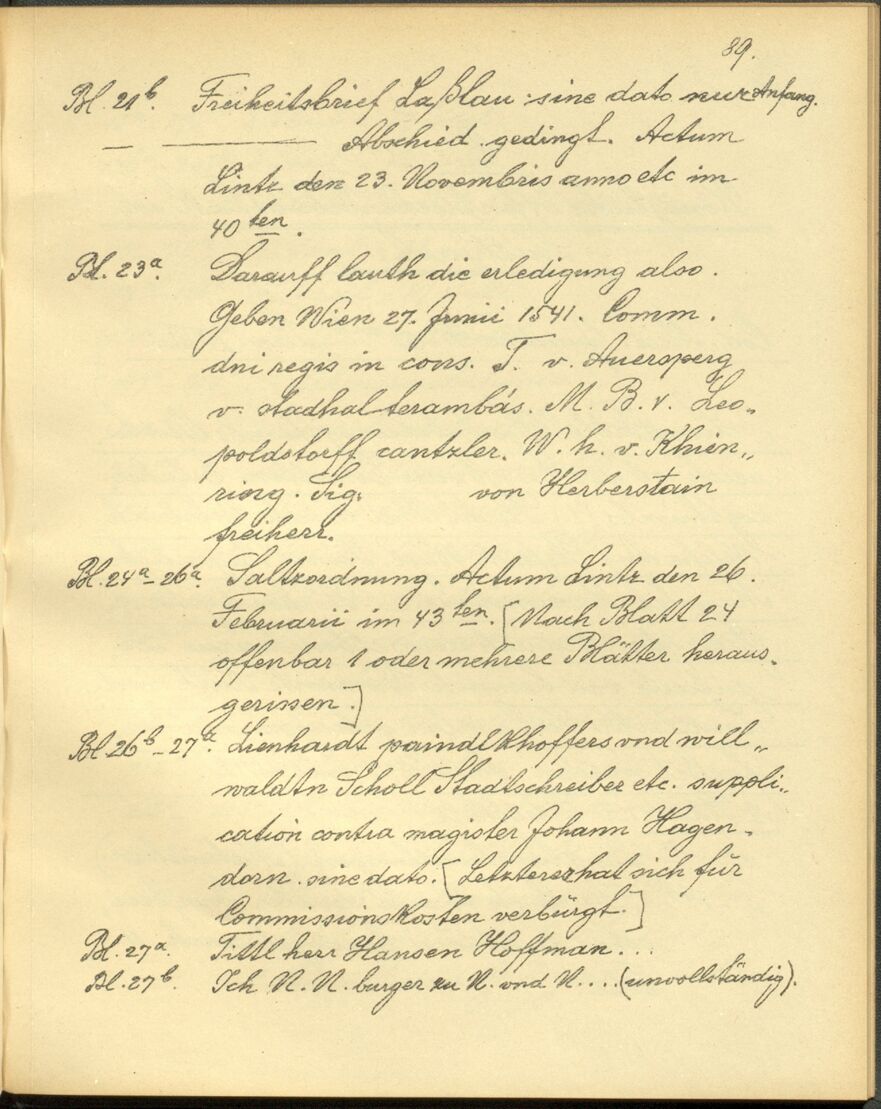 89.
Bl. 21b. Freiheitsbrief Laßlau : sine dato nur Anfang.
— ——— Abschied gedingt. Actum
Lintz den 23. Novembris anno etc im
40ten.
Bl. 23a. Darauff lauth die erledigung also.
Geben Wien 27. Junii 1541. Comm.
dni regis in cons. T. v. Auersperg
v. stadhalterambäs. M. B. v. Leo-
poldstorff cantzler. W. h. v. Khien„
ring. Sig. von Herberstain
freiherr.
Bl. 24a–26a. Saltzordnung. Actum Lintz den 26.
Februarii im 43ten. [Nach Blatt 24
offenbar 1 oder mehrere Blätter heraus-
gerissen.]
Bl 26b–27a. Lienhardt paindlkhoffers vnd will„
waldtn Scholl Stadtschreiber etc. suppli„
cation contra magister Johann Hagen-
dorn. sine dato. [Letzterer hat sich für
Commissionskosten verbürgt.]
Bl. 27a. Tittl herr Hansen Hoffman...
Bl. 27b. Ich N. N. burger zu N. vnd N.... (unvollständig).